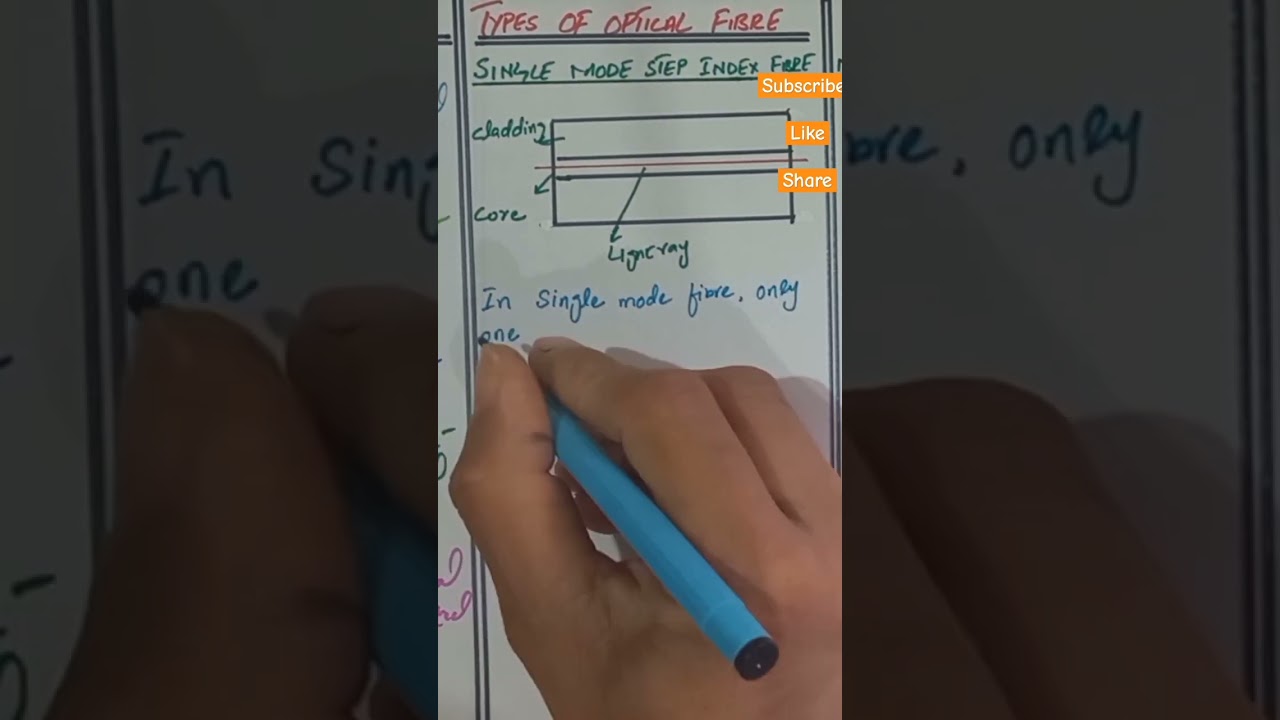 TYPES OF OPTICAL FIBRE
SINGLE MODE STEP INDEX FIBRE
Subscribe
cladding
Like
Share
Core
Light ray
In Single mode fibre, only
one